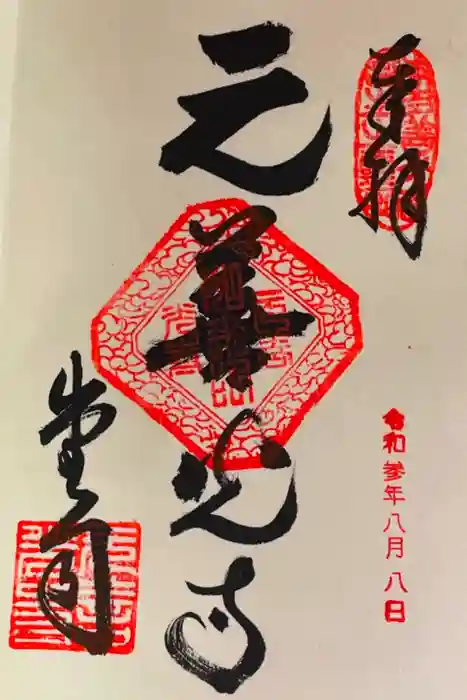 奉拝
令和参年八月八日
元善光寺
堂司